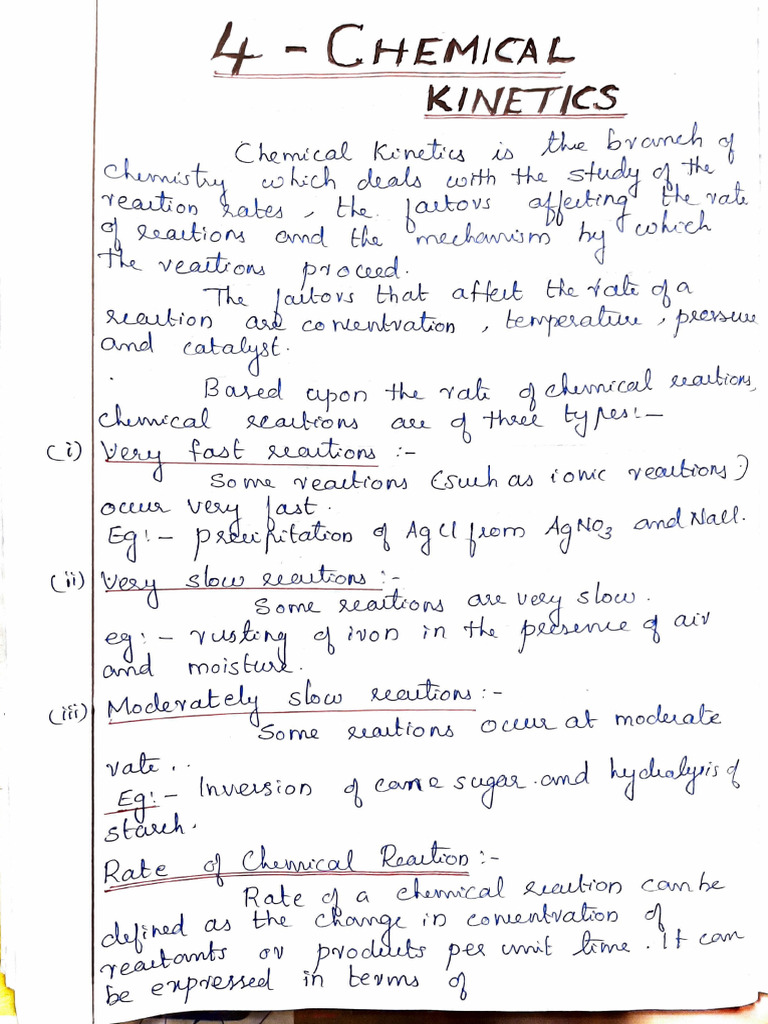 4 - CHEMICAL
KINETICS
Chemical Kinetics is the branch of
chemistry which deals with the study of the
reaction rates, the factors affecting the rate
of reactions and the mechanism by which
the reactions proceed.
The factors that affect the rate of a
reaction are concentration, temperature, pressure
and catalyst.
Based upon the rate of chemical reactions,
chemical reactions are of three types:-
(i) Very fast reactions :-
Some reactions (such as ionic reactions)
occur very fast.
Eg:- precipitation of AgCl from AgNO3 and NaCl.
(ii) Very slow reactions :-
Some reactions are very slow.
eg:- rusting of iron in the presence of air
and moisture.
(iii) Moderately slow reactions :-
Some reactions occur at moderate
rate..
Eg:- Inversion of cane sugar and hydralysis of
starch.
Rate of Chemical Reaction :-
Rate of a chemical reaction can be
defined as the change in concentration of
reactants or products per unit time. It can
be expressed in terms of